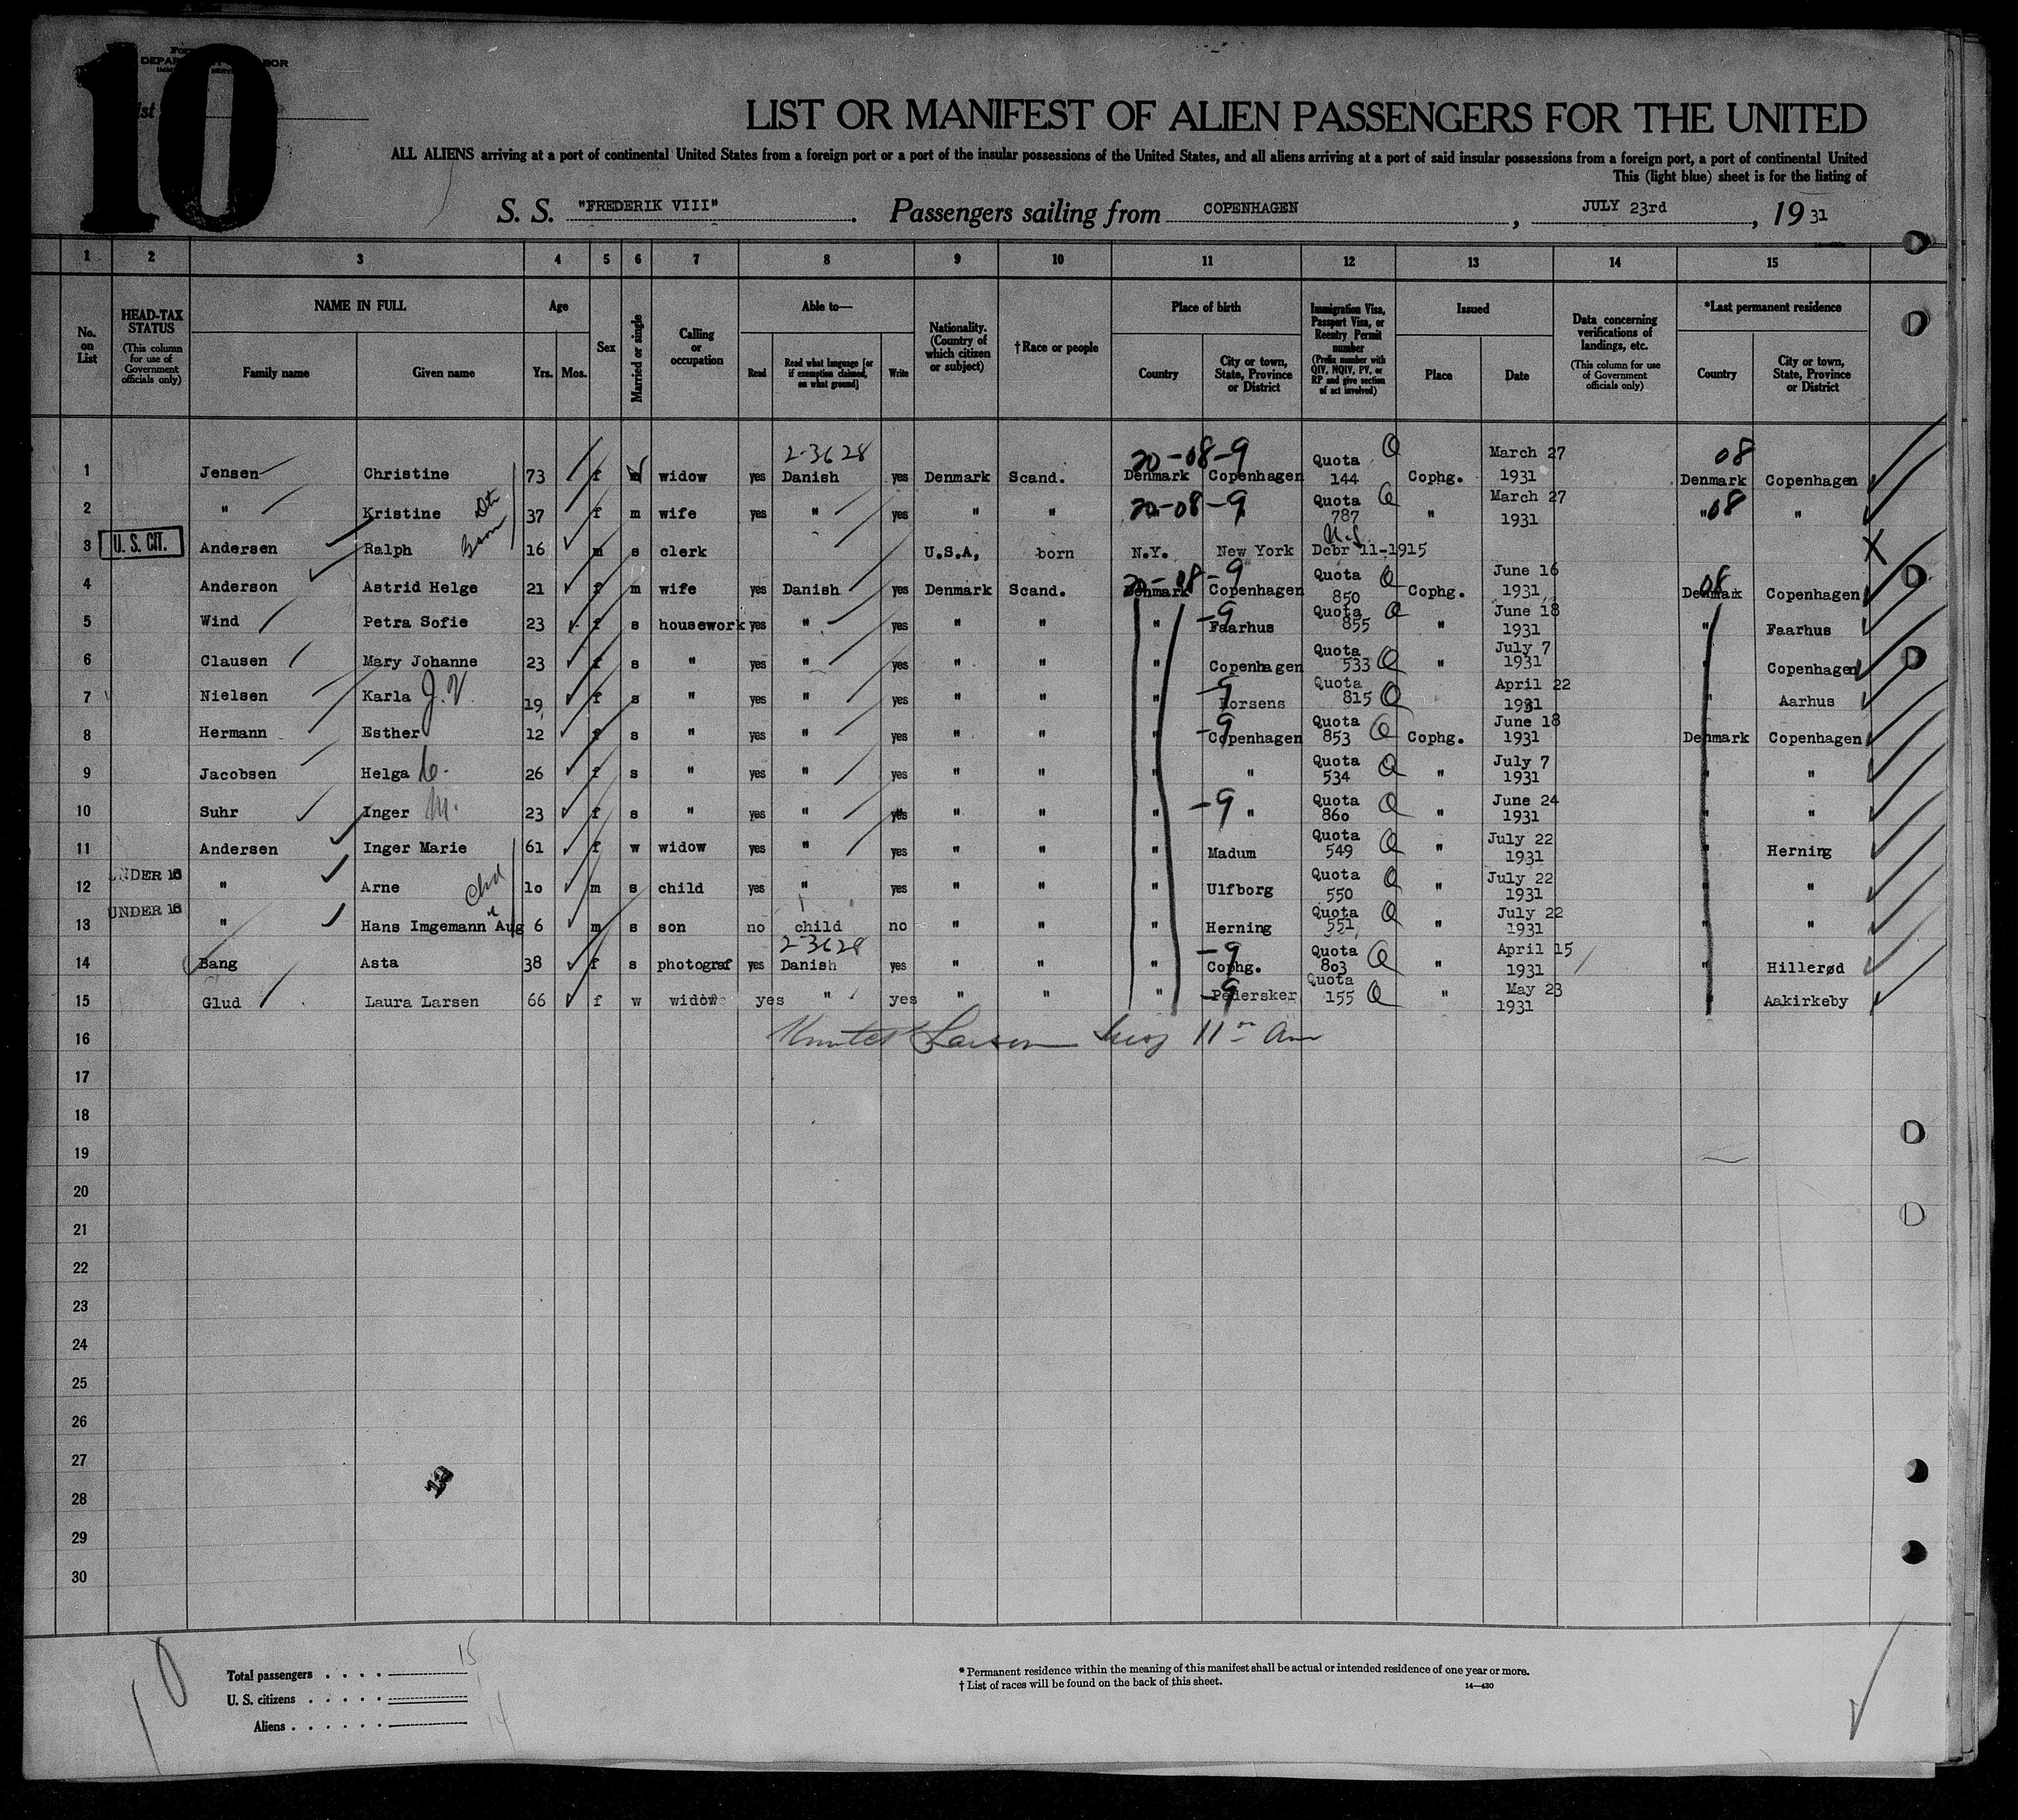 10
LIST OR MANIFEST OF ALIEN PASSENGERS FOR THE UNITED
ALL ALIENS arriving at a port of continental United States from a foreign port or a port of the insular possessions of the United States, and all aliens arriving at a port of said insular possessions from a foreign port, a port of continental United
This (light blue) sheet is for the listing of
S. S. "FREDERIK VIII" . Passengers sailing from COPENHAGEN , JULY 23rd , 19 31
1 2 3 4 5 6 7 8 9 10 11 12 13 14 15
No. on List
HEAD-TAX STATUS (This column for use of Government officials only)
NAME IN FULL Family name Given name
Age Yrs. Mos.
Sex
Married or single
Calling or occupation
Able to— Read Read what language [or if exemption claimed, on what ground] Write
Nationality. (Country of which citizen or subject)
†Race or people
Place of birth Country City or town, State, Province or District
Immigration Visa, Passport Visa, or Reentry Permit number (Prefix number with QIV, NQIV, PV, or RP and give section of act involved)
Issued Place Date
Data concerning verifications of landings, etc. (This column for use of Government officials only)
*Last permanent residence Country City or town, State, Province or District
2-3628 20-08-9 08
1 Jensen Christine 73 f widow yes Danish yes Denmark Scand. Denmark Copenhagen Quota 144 Cophg. March 27 1931 Denmark Copenhagen
2 " Kristine 37 f m wife yes " yes " " 20-08-9 " Quota 787 " March 27 1931 " 08 "
3 U. S. CIT. Andersen Ralph 16 m s clerk U.S.A, born N.Y. New York Dcbr 11-1915
4 Anderson Astrid Helge 21 f m wife yes Danish yes Denmark Scand. 20-08-9 Denmark Copenhagen Quota 850 Cophg. June 16 1931, 08 Denmark Copenhagen
5 Wind Petra Sofie 23 f s housework yes " yes " " " -9 Faarhus Quota 855 " June 18 1931 " Faarhus
6 Clausen Mary Johanne 23 f s " yes " yes " " " Copenhagen Quota 533 " July 7 1931 " Copenhagen
7 Nielsen Karla J.V. 19 f s " yes " yes " " " -9 Horsens Quota 815 April 22 1931 " Aarhus
8 Hermann Esther 12 f s " yes " yes " " " -9 Copenhagen Quota 853 Cophg. June 18 1931 Denmark Copenhagen
9 Jacobsen Helga 26 f s " yes " yes " " " " Quota 534 " July 7 1931 " "
10 Suhr Inger M. 23 f s " yes " yes " " " -9 " Quota 860 " June 24 1931 " "
11 Andersen Inger Marie 61 f w widow yes " yes " " " Madum Quota 549 " July 22 1931 " Herning
12 UNDER 16 " Arne 10 m s child yes " yes " " " Ulfborg Quota 550 " July 22 1931 " "
13 UNDER 16 " Hans Imgemann Aug 6 m s son no child no " " " Herning Quota 551 " July 22 1931 " "
2-3628
14 Bang Asta 38 f s photograf yes Danish yes " " " -9 Cophg. Quota 803 " April 15 1931 " Hillerød
15 Glud Laura Larsen 66 f w widow yes " yes " " " -9 Pedersker Quota 155 " May 23 1931 " Aakirkeby
16
17
18
19
20
21
22
23
24
25
26
27
28
29
30
10
Total passengers . . . . 15
U. S. citizens . . . . .
Aliens . . . . . . 14
* Permanent residence within the meaning of this manifest shall be actual or intended residence of one year or more.
† List of races will be found on the back of this sheet. 14—430